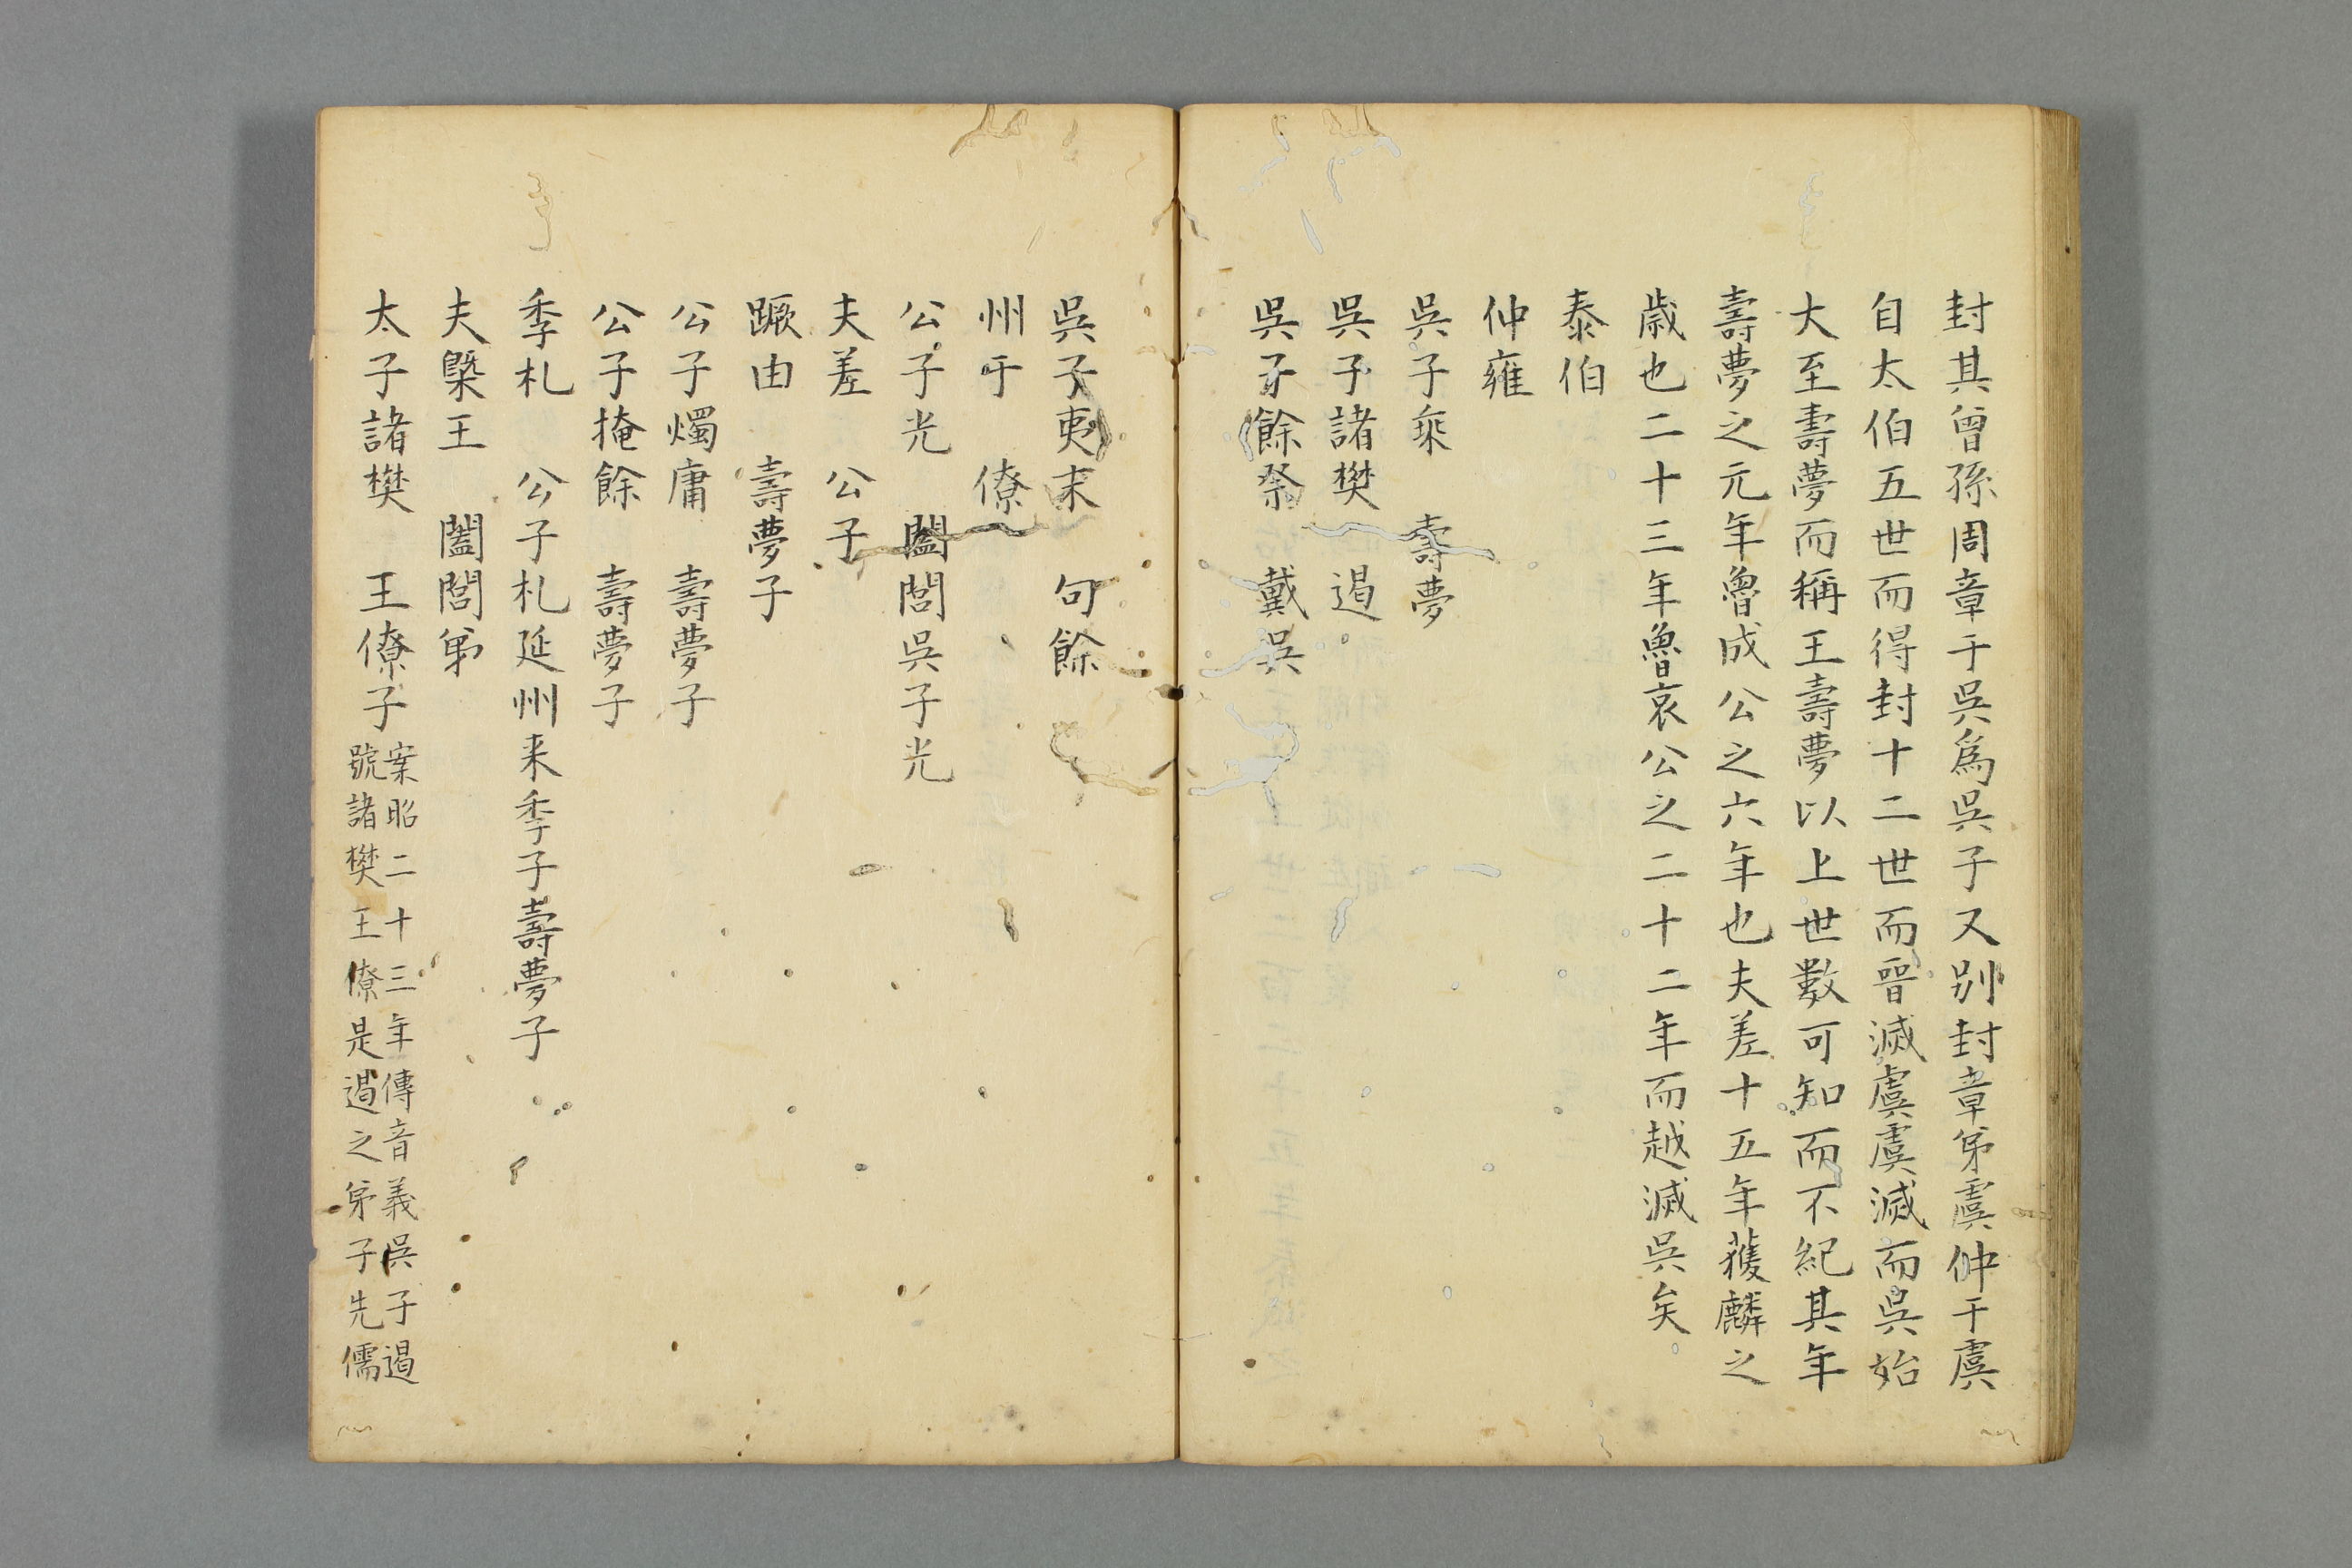 封其曾孫周章于吳爲吳子又別封章弟虞仲于虞
自太伯五世而得封十二世而晉滅虞虞滅而吳始
大至壽夢而稱王壽夢以上世數可知而不紀其年
壽夢之元年魯成公之六年也夫差十五年獲麟之
歲也二十三年魯哀公之二十二年而越滅吳矣
泰伯
仲雍
吳子乘　壽夢
吳子諸樊　遏
吳子餘祭　戴吳
吳子夷末　句餘
州于　僚
公子光　闔閭吳子光
夫差　公子
蹶由　壽夢子
公子燭庸　壽夢子
公子掩餘　壽夢子
季札　公子札延州来季子壽夢子
夫槩王　闔閭弟
太子諸樊　王僚子
案昭二十三年傳音義吳子遏
號諸樊王僚是遏之弟子先儒